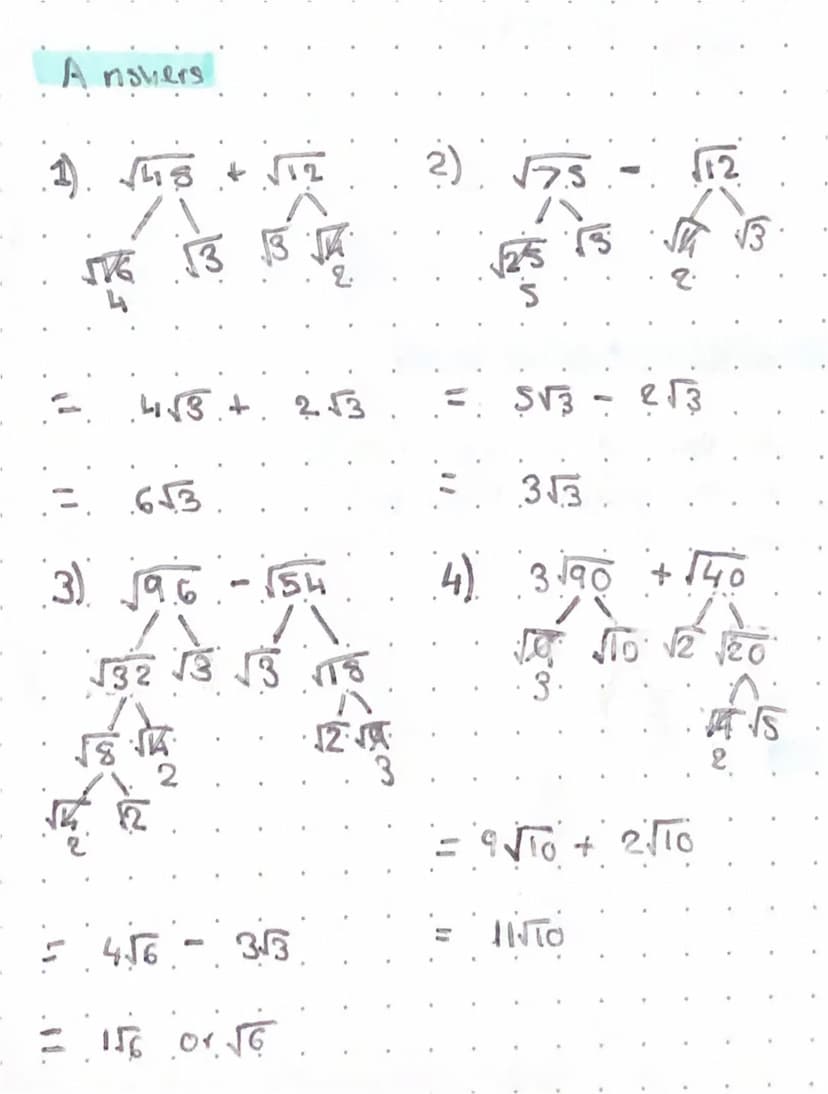 Answers
1) √48 + √12
√16 √3 √3 √4
4 2
= 4√3 + 2√3
= 6√3
2) √75 - √12
√25 √3 √4 √3
5 2
= 5√3 - 2√3
= 3√3
3) √96 - √54
√32 √3 √3 √18
√8 √4 √2 √9
2 3
√4 √2
2
= 4√6 - 3√3
= 1√6 or √6
4) 3√90 + √40
√9 √10 √2 √20
3
√4 √5
2
= 9√10 + 2√10
= 11√10